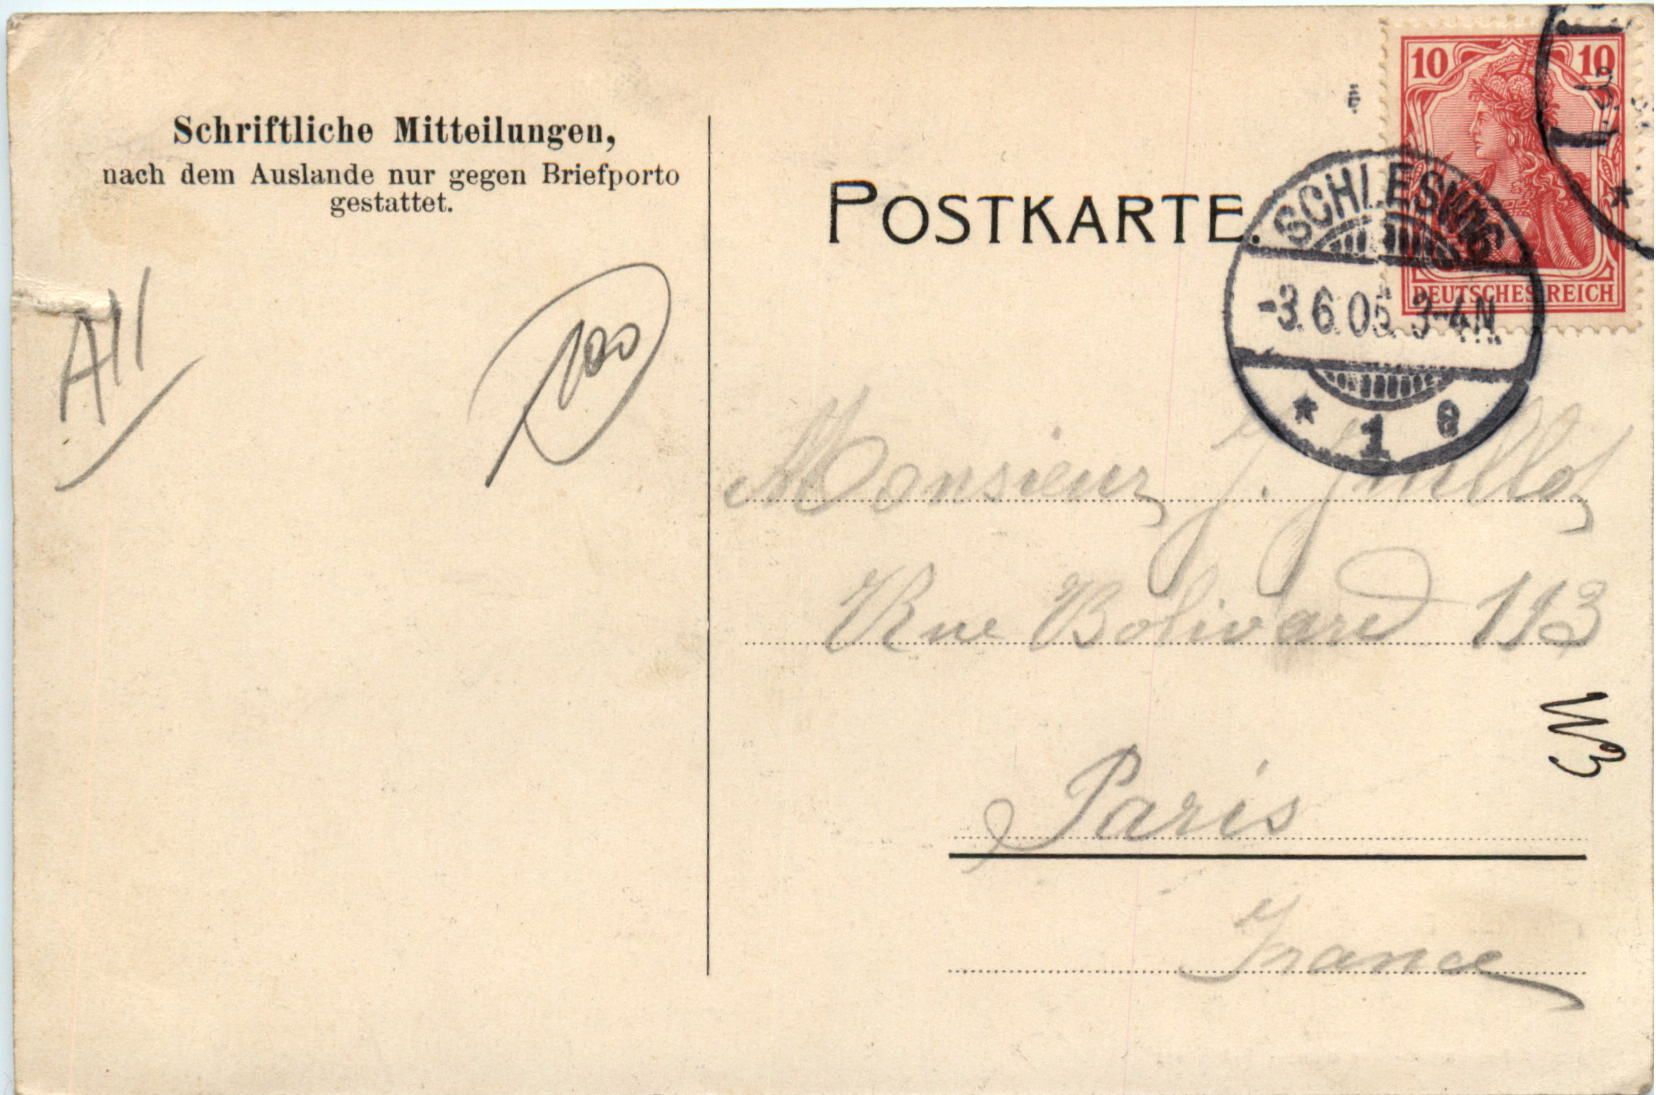 Schriftliche Mitteilungen,
nach dem Auslande nur gegen Briefporto
gestattet.
POSTKARTE.
10 10
DEUTSCHES REICH
SCHLESWIG
-3.6.05. 3-4N
* 1 e
All
100
Monsieur J. Guillot
Rue Bolivard 113
Paris
France
W3